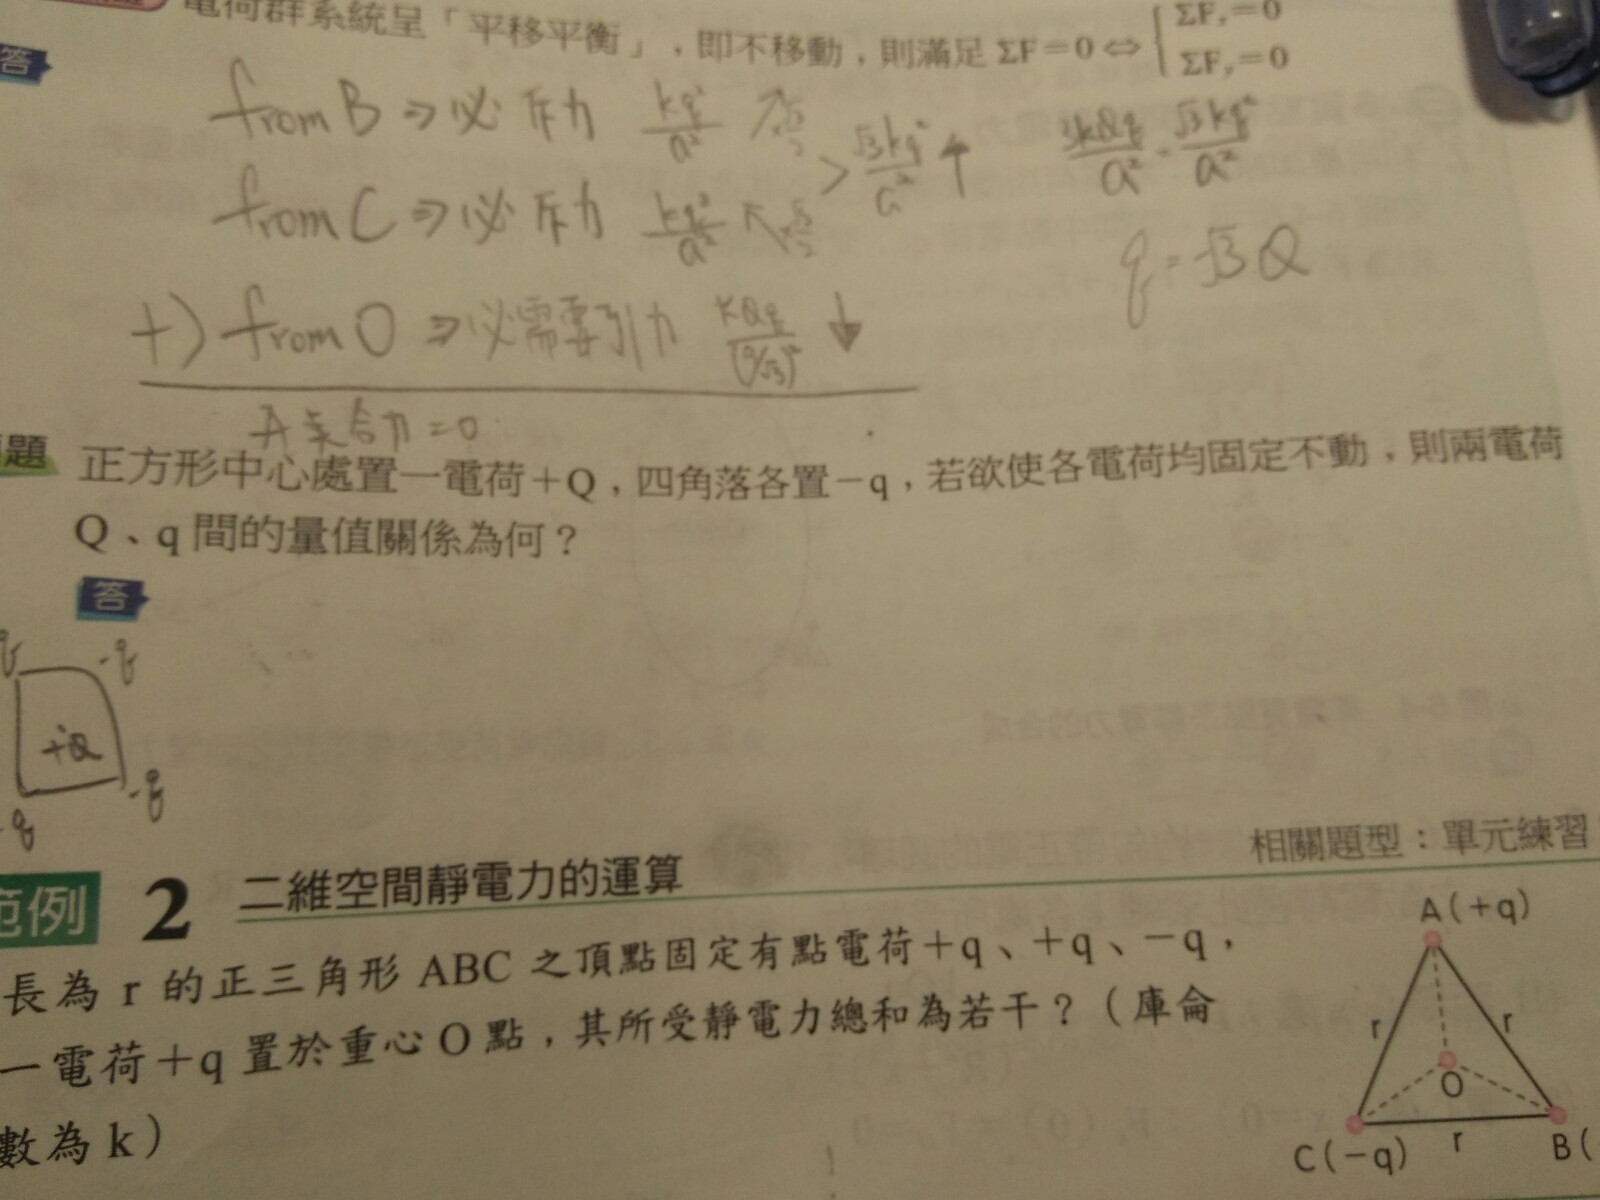 電荷群系統呈「平移平衡」，即不移動，則滿足 ΣF=0⇔ ΣFₓ=0
ΣFᵧ=0
答
from B ⇒ 必 斥力 kq²/a² ↗
√3kq²/a² ↑
from C ⇒ 必 斥力 kq²/a² ↖
q=√3Q
+) from O ⇒ 必需要引力 kQq/(a/√3)² ↓
合力=0
題 正方形中心處置一電荷+Q，四角落各置−q，若欲使各電荷均固定不動，則兩電荷
Q、q 間的量值關係為何？
答
q -q
+Q
-q -q
相關題型：單元練習
範例 2 二維空間靜電力的運算
長為 r 的正三角形 ABC 之頂點固定有點電荷+q、+q、−q，
一電荷+q 置於重心 O 點，其所受靜電力總和為若干？（庫侖
數為 k）
A(+q)
r r
O
C(−q) r B(